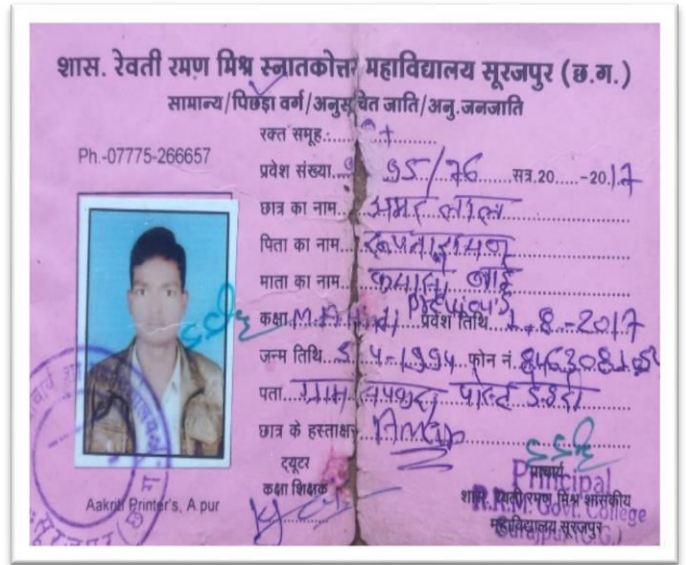 शास. रेवती रमण मिश्र स्नातकोत्तर महाविद्यालय सूरजपुर (छ.ग.)
सामान्य/पिछड़ा वर्ग/अनुसूचित जाति/अनु.जनजाति
रक्त समूह:
Ph.-07775-266657
प्रवेश संख्या 95/76 सत्र.20.....-2017
छात्र का नाम अमर लाल
पिता का नाम रूपनारायण
माता का नाम बाई
कक्षा M.A. Previous प्रवेश तिथि 1-8-2017
जन्म तिथि 5-4-1994 फोन नं.
पता ग्राम पोस्ट
छात्र के हस्ताक्षर Amar
ट्यूटर
कक्षा शिक्षक
प्राचार्य
Principal
शास. रेवती रमण मिश्र शासकीय
R.R.M. Govt. College
महाविद्यालय सूरजपुर
Surajpur (C.G.)
Aakriti Printer's, A pur